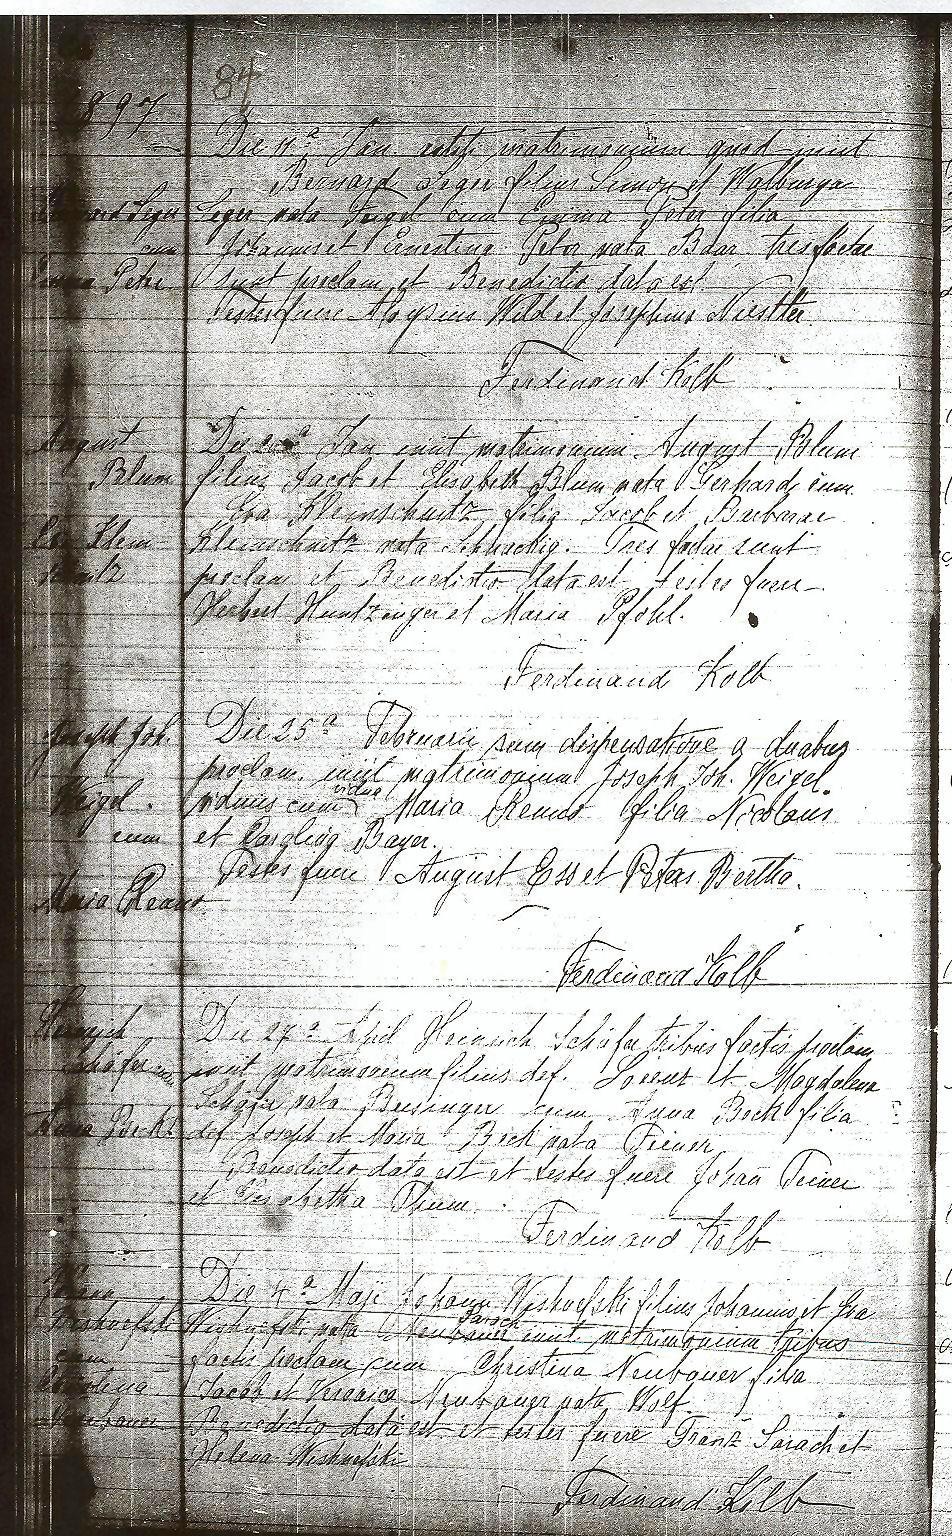 84
1897
Die 11ª Jan. matrimonium quod iniit
Bernard Leger filius Simon et Walburga
Leger nata Engel cum Emma Peter filia
Johannis et Ernestina Peter nata Baar tres factae
sunt proclam. et Benedictio data est.
Testes fuere Aloysius Wild et Josephus Niestler
Ferdinand Kolb
August
Blum
Die Jan. iniit matrimonium August Blum
filius Jacob et Elisabeth Blum nata Gerhard cum
Eva Kleinschnitz filia Jacob et Barbarae
Kleinschnitz nata Tres factae sunt
proclam et Benedictio data est testes fuere
Herbert Huntzinger et Maria Pfohl.
Ferdinand Kolb
Joseph Joh.
Weigel.
cum
Maria Renno
Die 25ª Februarii cum dispensatione a duabus
proclam. iniit matrimonium Joseph Joh. Weigel
viduus cum vidua Maria Renno filia Nicolaus
et Carolina Bayer.
Testes fuere August Ess et Peters Bertha.
Ferdinand Kolb
Heinrich
Schäfer cum
Anna Beck.
Die 27ª April Heinrich Schäfer tribus factis proclam
iniit matrimonium filius def. Lorenz et Magdalena
Schäfer nata Beisinger cum Anna Beck filia
def Joseph et Maria Beck nata Feiner
Benedictio data est et testes fuere Johan Feiner
et Elisabetha Thum.
Ferdinand Kolb
Die 4ª Maji Johann Wishnefski filius Johannis et Eva
Wishnefski nata Sarach iniit matrimonium tribus
factis proclam cum Christina Neubauer filia
Jacob et Veronica Neubauer nata Wolf.
Benedictio data est et testes fuere Franz Sarach et
Helena Wishnefski
Ferdinand Kolb